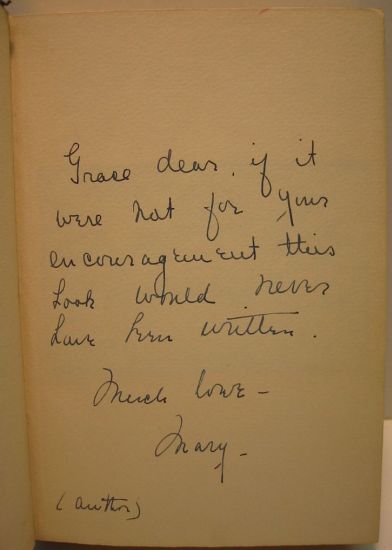 Grace dear, if it
were not for your
encouragement this
book would never
have been written.
Much love –
Mary –
(author)